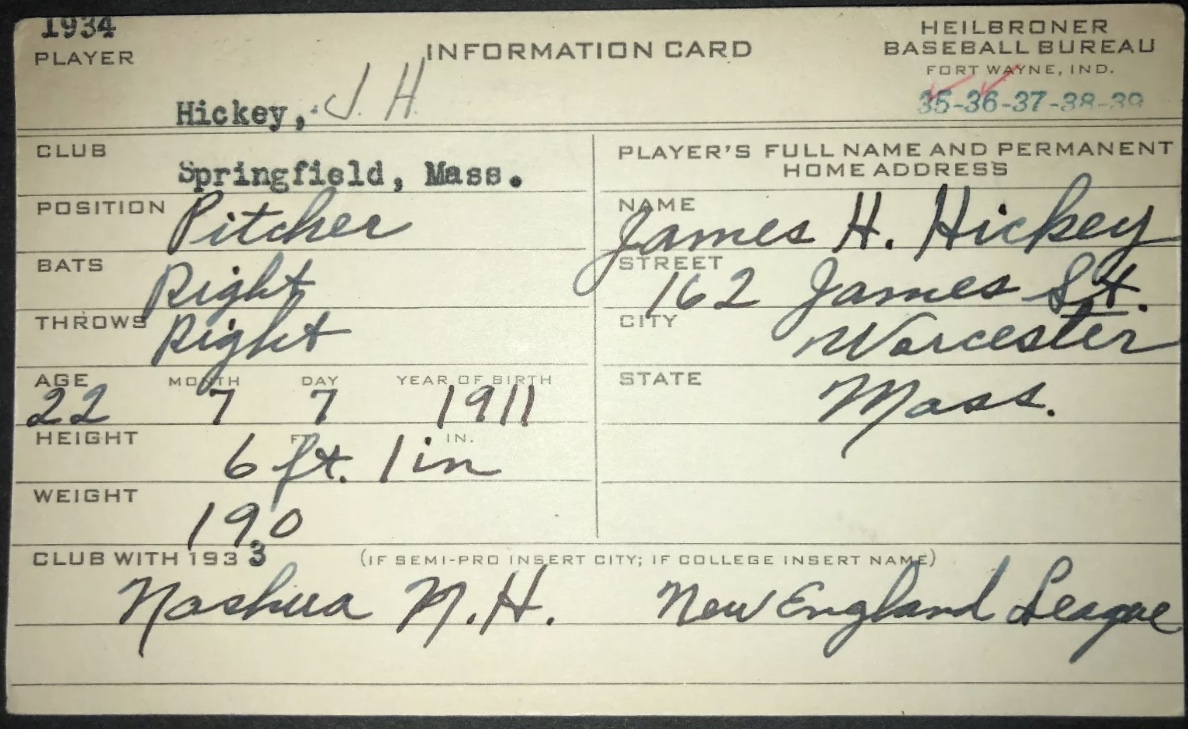 1934
PLAYER
INFORMATION CARD
HEILBRONER
BASEBALL BUREAU
FORT WAYNE, IND.
35-36-37-38-39
Hickey, J. H.
CLUB
Springfield, Mass.
PLAYER'S FULL NAME AND PERMANENT
HOME ADDRESS
POSITION Pitcher
NAME
James H. Hickey
BATS
Right
STREET
162 James St.
THROWS
Right
CITY
Worcester
AGE MONTH DAY YEAR OF BIRTH
22 7 7 1911
STATE
Mass.
HEIGHT FT. IN.
6 ft. 1 in
WEIGHT
190
CLUB WITH 1933 (IF SEMI-PRO INSERT CITY; IF COLLEGE INSERT NAME)
Nashua N.H. New England League